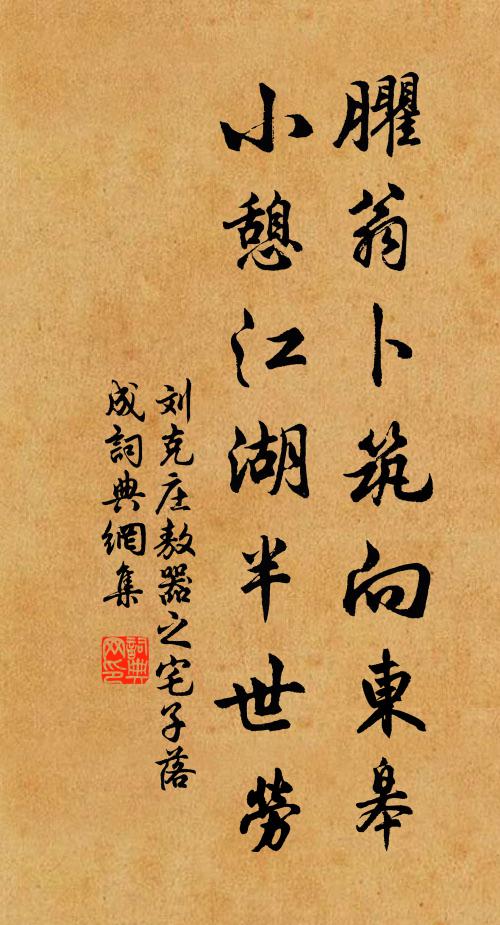 臞翁卜筑向東皋
小憩江湖半世勞
刘克庄敖器之宅子落
成詞典網集
詞典網印